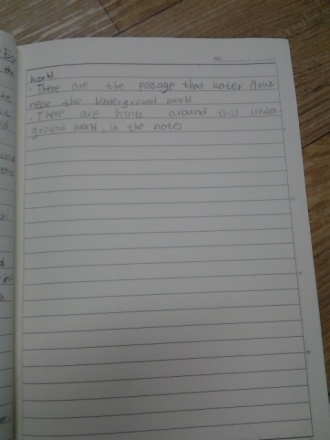 world.
· There are the passage that water flows
near the underground world
· There are hints around this under
ground world, in the note